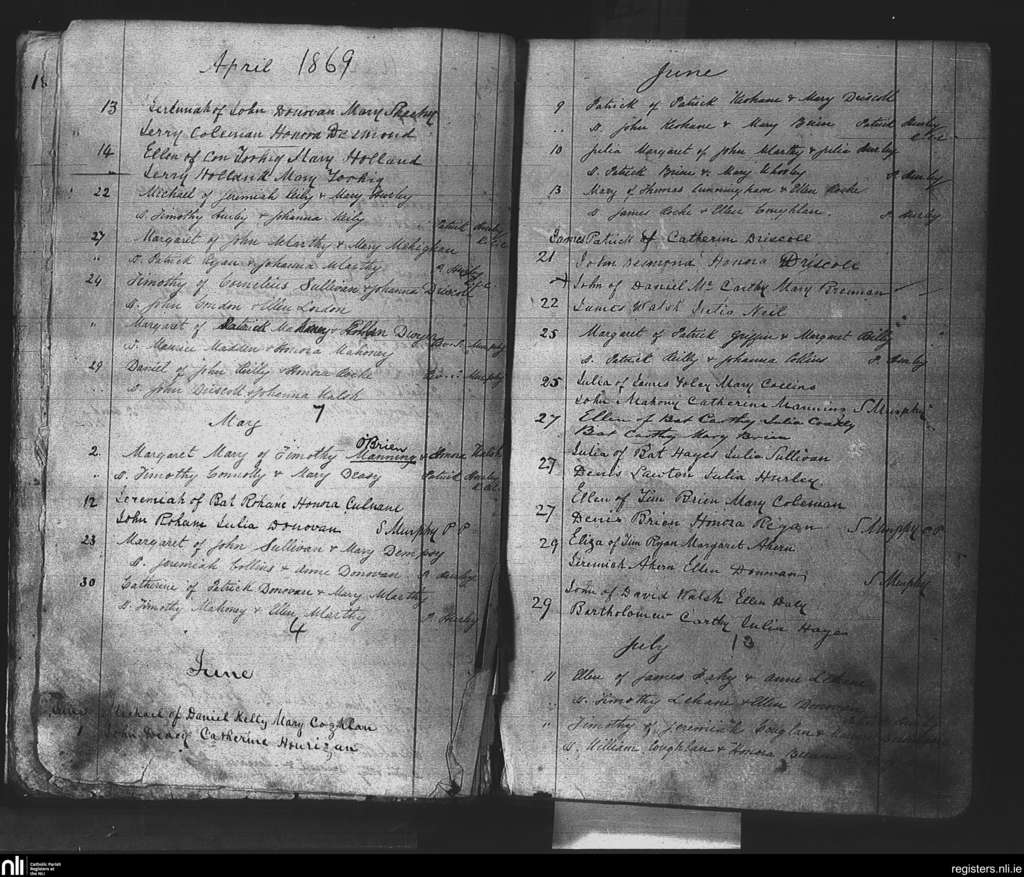 18
April 1869
13 Jeremiah of John Donovan Mary Sheehy
" Jerry Coleman Honora Desmond
14 Ellen of Con Toohig Mary Holland
Jerry Holland Mary Toohig
" 22 Michael of Jeremiah Reily & Mary Hurley
s. Timothy Hurley & Johanna Reily Patrick Hurley
27 Margaret of John McCarthy & Mary Mehighan
" s. Patrick Ryan & Johanna McCarthy P. Hurley
24 Timothy of Cornelius Sullivan & Johanna Driscoll
s. John Condon & Ellen Condon
" Margaret of Patrick Mahoney & Ellen
s. Maurice Madden & Honora Mahoney Murphy
29 Daniel of John Reilly & Honora Roche Murphy
s. John Driscoll & Johanna Walsh
7
May
O'Brien
2 Margaret Mary of Timothy Manning & Honora Walsh
" s. Timothy Connolly & Mary Deasy Patrick Hurley
12 Jeremiah of Bat Rohane Honora Culnane
John Rohane Julia Donovan S Murphy P P
23 Margaret of John Sullivan & Mary Dempsy
s. Jeremiah Collins & Anne Donovan P. Hurley
30 Catherine of Patrick Donovan & Mary McCarthy
s. Timothy Mahoney & Ellen McCarthy P. Hurley
4
June
June Michael of Daniel Kelly Mary Coghlan
1 John Deasy Catherine Hourigan
June
9 Patrick of Patrick Keohane & Mary Driscoll
" s. John Keohane & Mary Brien Patrick Hurley
10 Julia Margaret of John McCarthy & Julia Hurley
s. Patrick Brien & Mary P. Hurley
13 Mary of Thomas Cunningham & Ellen Roche
s. James Roche & Ellen Coughlan. P. Hurley
James Patrick of Catherin Driscoll
21 John Desmond Honora Driscoll
+ John of Daniel Mc Carthy Mary Brennan
22 James Walsh Julia Neil
25 Margaret of Patrick Griffin & Margaret Reilly
s. Patrick Reilly & Johanna Collins P. Hurley
25 Julia of James Foley Mary Collins
John Mahony Catherine Manning S Murphy
27 Ellen of Bat Carthy Julia
Bat Carthy Mary Brien
27 Julia of Bat Hayes Julia Sullivan
Denis Lawton Julia Hurley
Ellen of Tim Brien Mary Coleman
27 Denis Brien Honora Regan S Murphy P P
29 Eliza of Tim Ryan Margaret Ahern
Jeremiah Ahern Ellen Donovan S Murphy
John of David Walsh Ellen Daly
29 Bartholomew Carthy Julia Hayes
July 13
11 Ellen of James Fahy & Anne Lehane
s. Timothy Lehane & Ellen Donovan
" Timothy of Jeremiah
s. William Coughlan & Honora Brien
nli Catholic Parish
Registers at
the NLI
registers.nli.ie